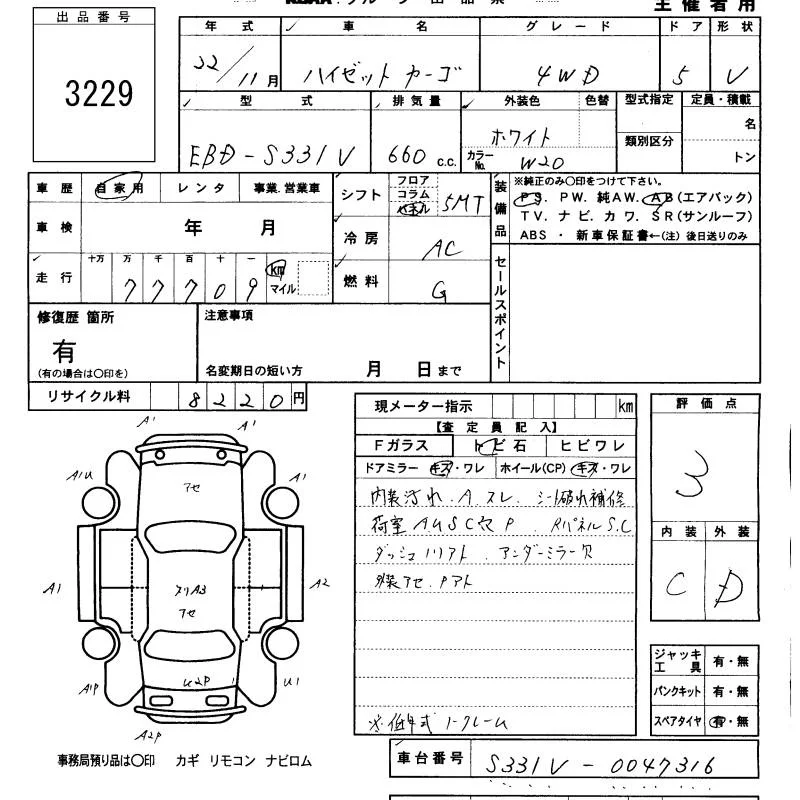 出品番号
3229
主催者用
年式 車名 グレード ドア 形状
22/11月 ハイゼットカーゴ 4WD 5 V
型式 排気量 外装色 色替 型式指定 定員・積載
EBD-S331V 660 c.c. ホワイト 類別区分 名
カラーNo. W20 トン
車歴 自家用 レンタ 事業.営業車
車検 年 月
走行 十万 万 千 百 十 一 km マイル
77709
シフト フロア コラム パネル 5MT
冷房 AC
燃料 G
装備品
※純正のみ○印をつけて下さい。
PS. PW. 純AW. AB(エアバック)
TV. ナビ. カワ. SR(サンルーフ)
ABS ・ 新車保証書←(注) 後日送りのみ
セールスポイント
修復歴 箇所
有
(有の場合は○印を)
注意事項
名変期日の短い方 月 日まで
リサイクル料 8220円
現メーター指示 km
【査定員記入】
Fガラス トビ石 ヒビワレ
ドアミラー キズ・ワレ ホイール(CP) キズ・ワレ
内装汚れ.A.スレ.シート破れ補修
荷室AUSC穴P.RパネルS.C
ダッシュノリアト.アンダーミラー欠
外装アセ.Pアト
※低年式ノークレーム
評価点
3
内装 外装
C D
ジャッキ工具 有・無
パンクキット 有・無
スペアタイヤ 有・無
A1 A1
A1U A1
アセ
A1 ヌリA3 A2
アセ
A1P U2P U1
A2P
事務局預り品は○印 カギ リモコン ナビロム
車台番号 S331V-0047316